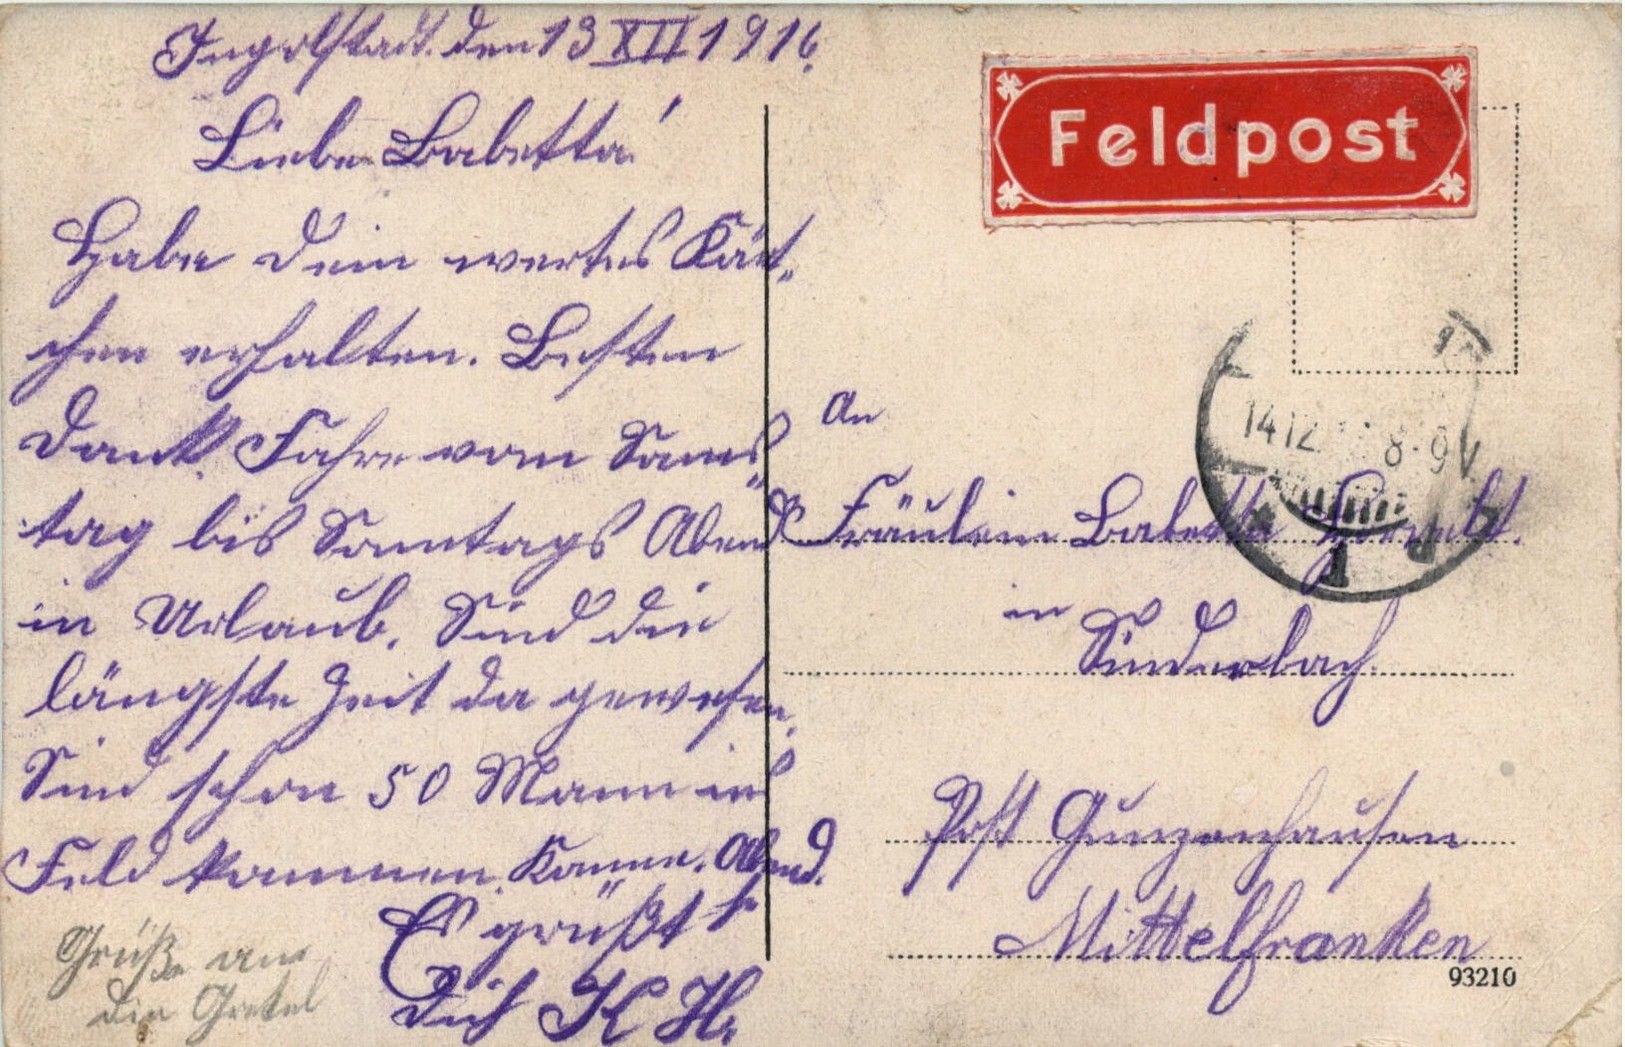 Ingolstadt. den 13 XII 1916.
Liebe Babetta!
Habe Dein wertes Kärt-
chen erhalten. Besten
Dank. Fahre vom Sams-
tag bis Sonntags Abend
in Urlaub. Sind die
längste Zeit da gewesen.
Sind schon 50 Mann ins
Feld kommen. Komme. Abend.
Es grüßt
Dich K H.
Grüße an
die Gretel
Feldpost
1412. 8-9V
An
Fräulein Babetta
in
Sinderlach.
Post Gunzenhausen
Mittelfranken
93210